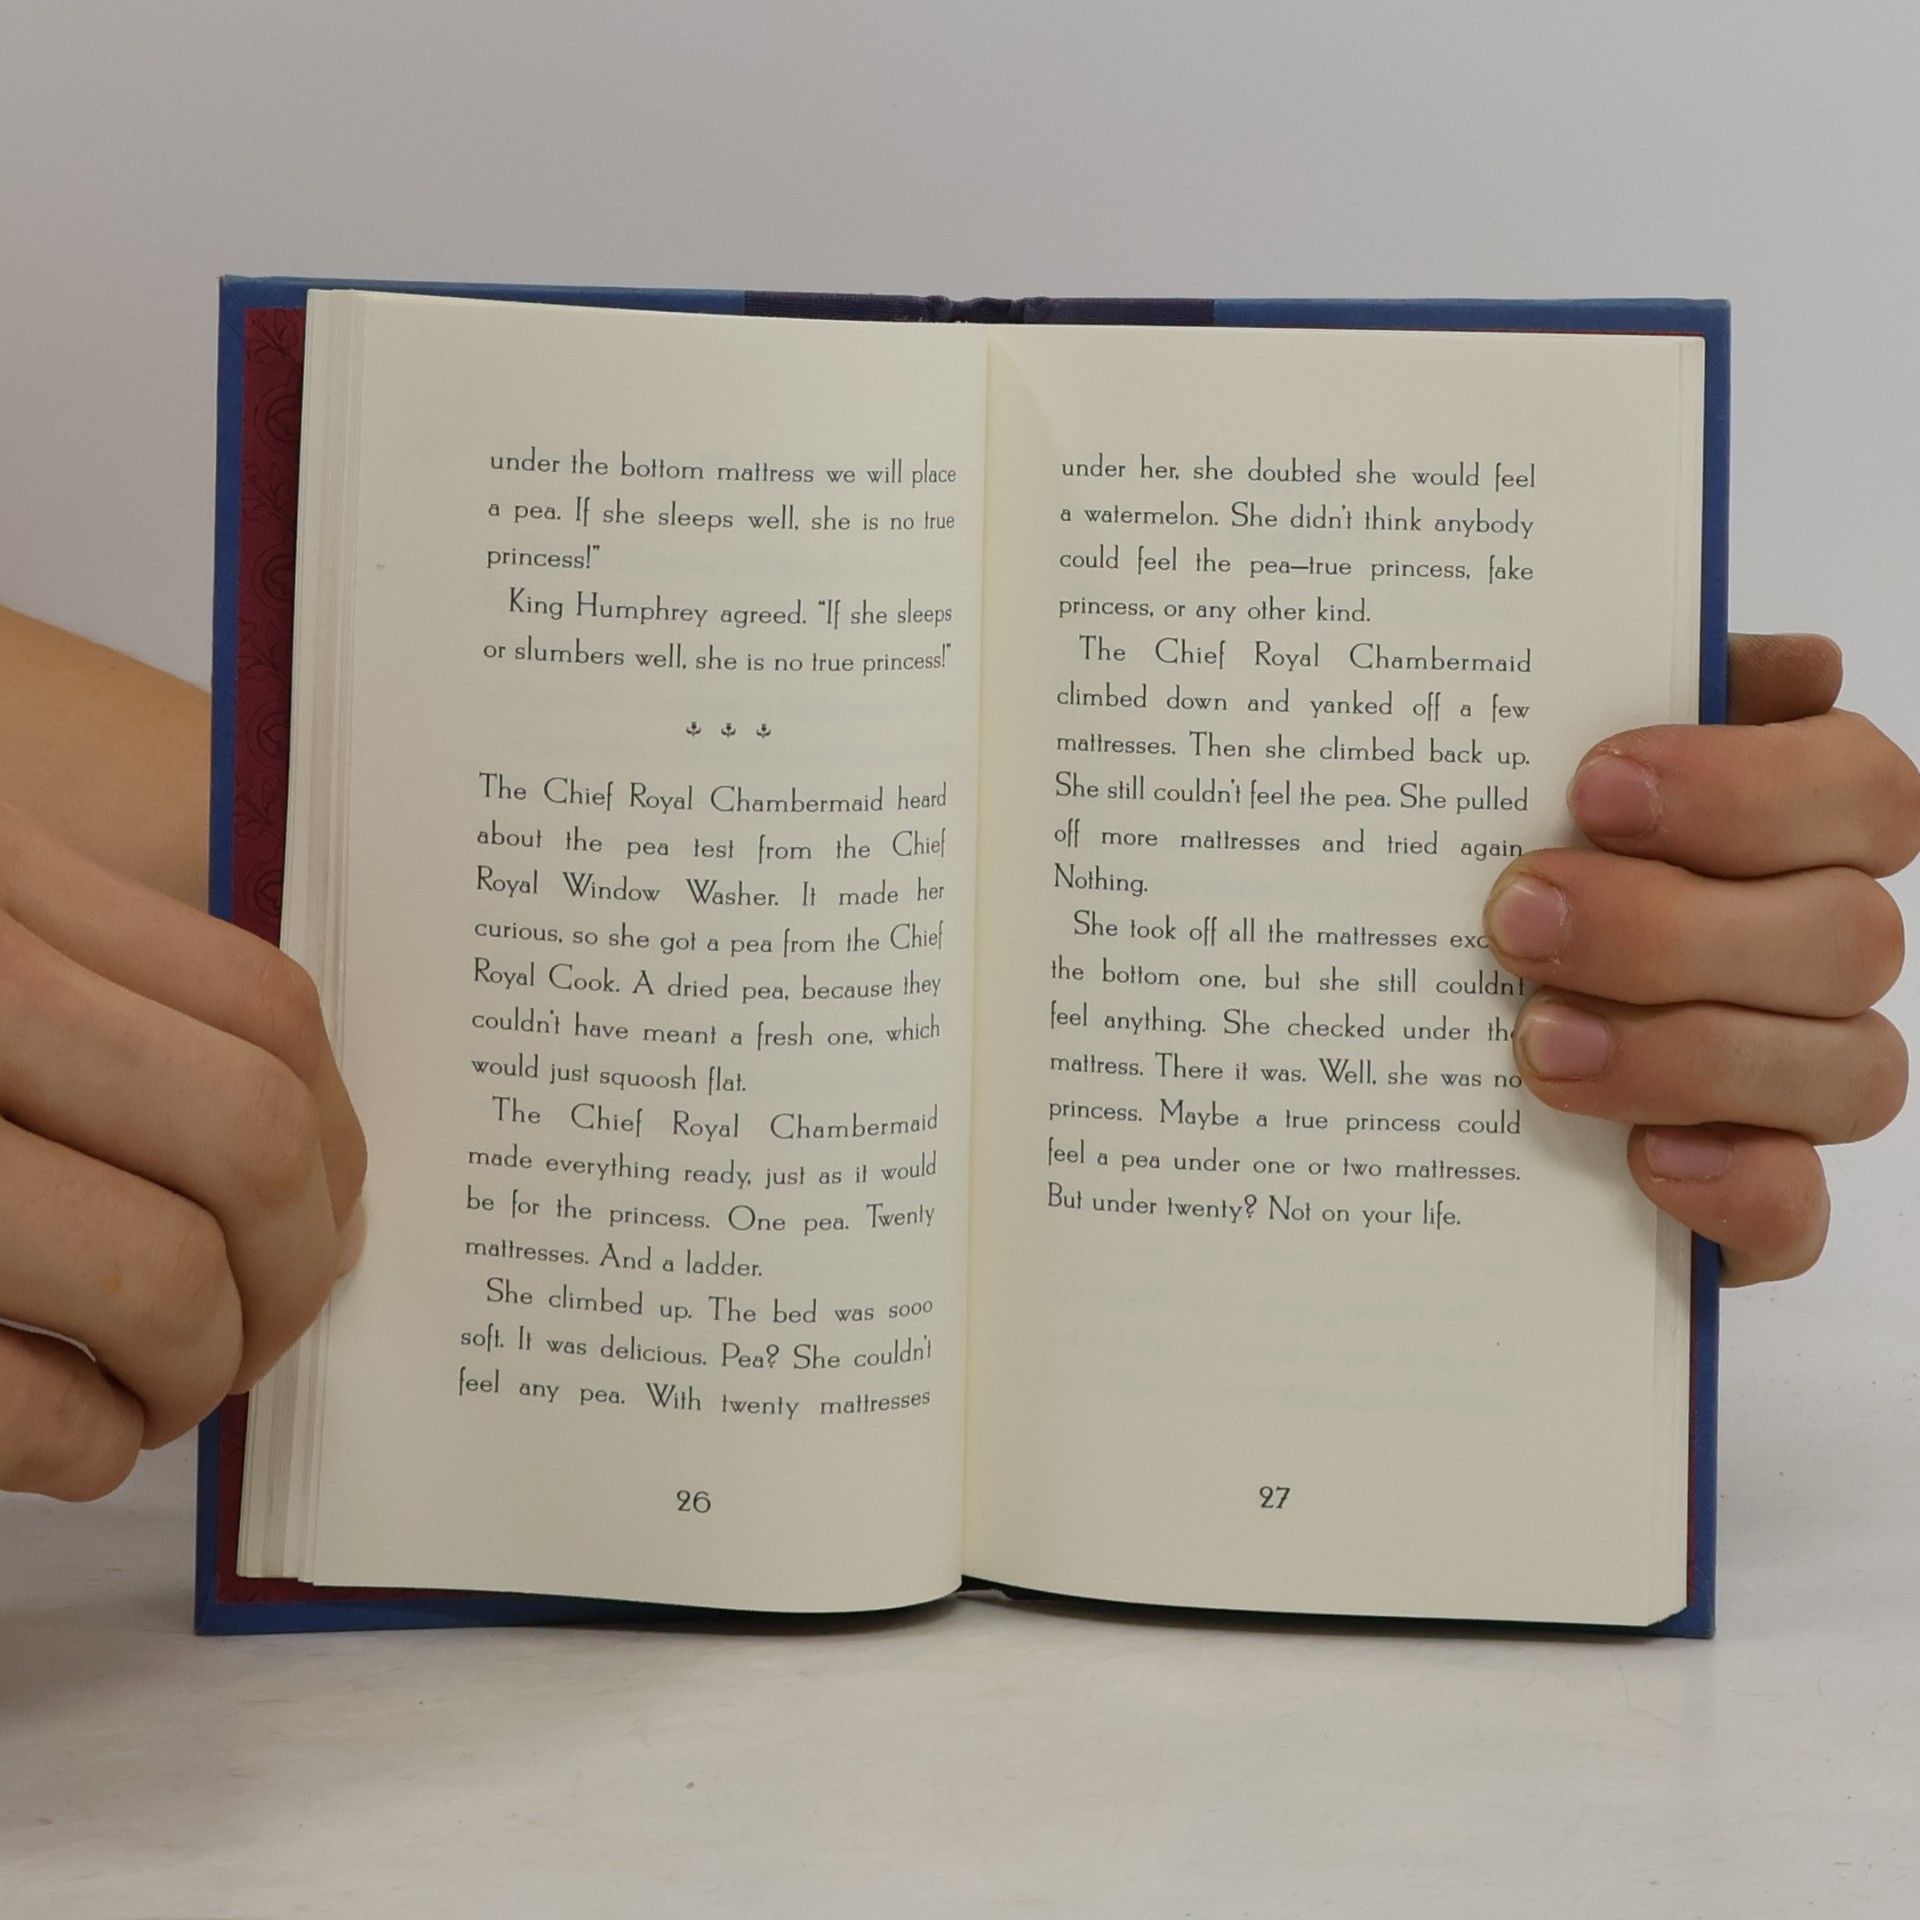 under the bottom mattress we will place
a pea. If she sleeps well, she is no true
princess!"
King Humphrey agreed. "If she sleeps
or slumbers well, she is no true princess!"
The Chief Royal Chambermaid heard
about the pea test from the Chief
Royal Window Washer. It made her
curious, so she got a pea from the Chief
Royal Cook. A dried pea, because they
couldn't have meant a fresh one, which
would just squoosh flat.
The Chief Royal Chambermaid
made everything ready, just as it would
be for the princess. One pea. Twenty
mattresses. And a ladder.
She climbed up. The bed was sooo
soft. It was delicious. Pea? She couldn't
feel any pea. With twenty mattresses
26
under her, she doubted she would feel
a watermelon. She didn't think anybody
could feel the pea—true princess, fake
princess, or any other kind.
The Chief Royal Chambermaid
climbed down and yanked off a few
mattresses. Then she climbed back up.
She still couldn't feel the pea. She pulled
off more mattresses and tried again
Nothing.
She took off all the mattresses
the bottom one, but she still couldn't
feel anything. She checked under the
mattress. There it was. Well, she was no
princess. Maybe a true princess could
feel a pea under one or two mattresses.
But under twenty? Not on your life.
27